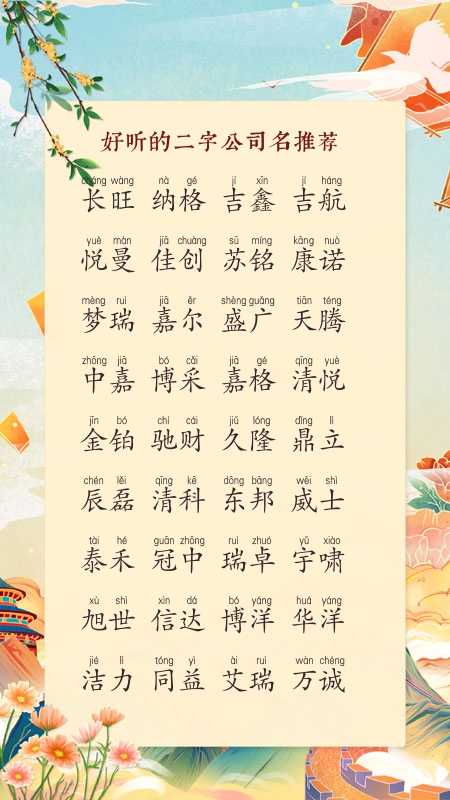 好听的二字公司名推荐
cháng wàng nà gé jí xīn jí háng
长旺 纳格 吉鑫 吉航
yuè màn jiā chuàng sū míng kāng nuò
悦曼 佳创 苏铭 康诺
mèng ruì jiā ěr shèng guǎng tiān téng
梦瑞 嘉尔 盛广 天腾
zhōng jiā bó cǎi jiā gé qīng yuè
中嘉 博采 嘉格 清悦
jīn bó chí cái jiǔ lóng dǐng lì
金铂 驰财 久隆 鼎立
chén lěi qīng kē dōng bāng wēi shì
辰磊 清科 东邦 威士
tài hé guān zhōng ruì zhuó yǔ xiào
泰禾 冠中 瑞卓 宇啸
xù shì xìn dá bó yáng huá yáng
旭世 信达 博洋 华洋
jié lì tóng yì ài ruì wàn chéng
洁力 同益 艾瑞 万诚